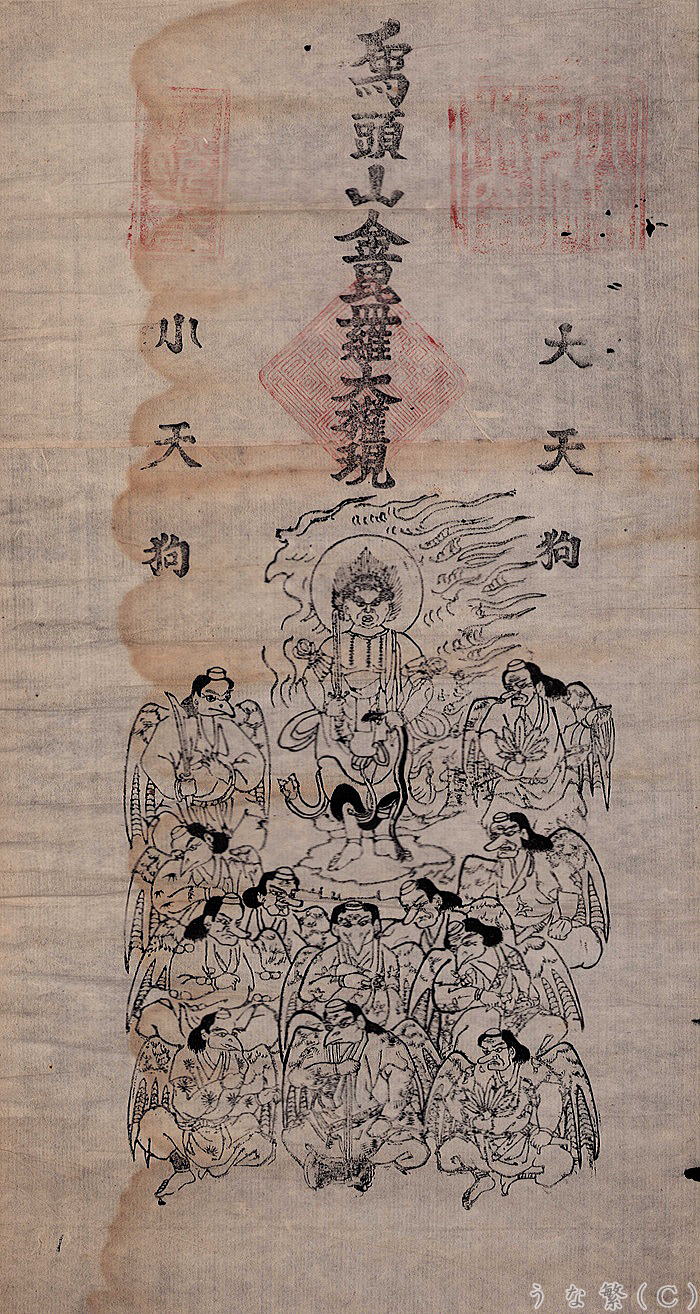 大天狗
象頭山金毘羅大權現
小天狗
うな繁(C)